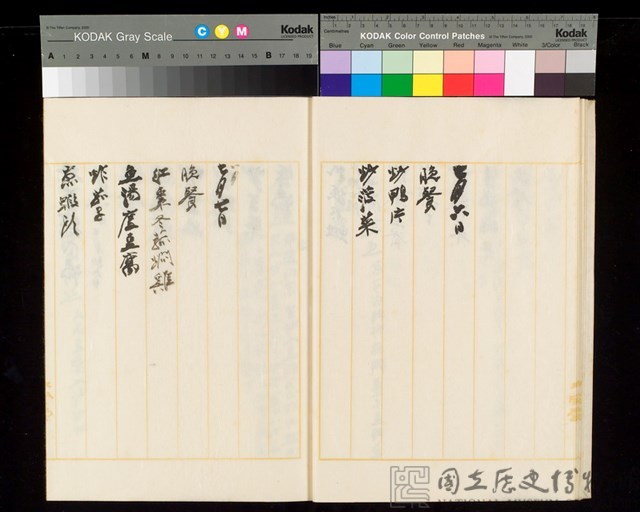 KODAK Gray Scale
C Y M
Kodak
A 1 2 3 4 5 6 M 8 9 10 11 12 13 14 15 B 17 18 19
KODAK Color Control Patches
Kodak
Blue Cyan Green Yellow Red Magenta White 3/Color Black
七月六日
晚餐
炒鴨片
炒菠菜
七月七日
晚餐
紅棗冬菰燜雞
魚湯煮豆腐
炸茄子
蒸蝦
國立歷史博物
NATIONAL MUSEUM